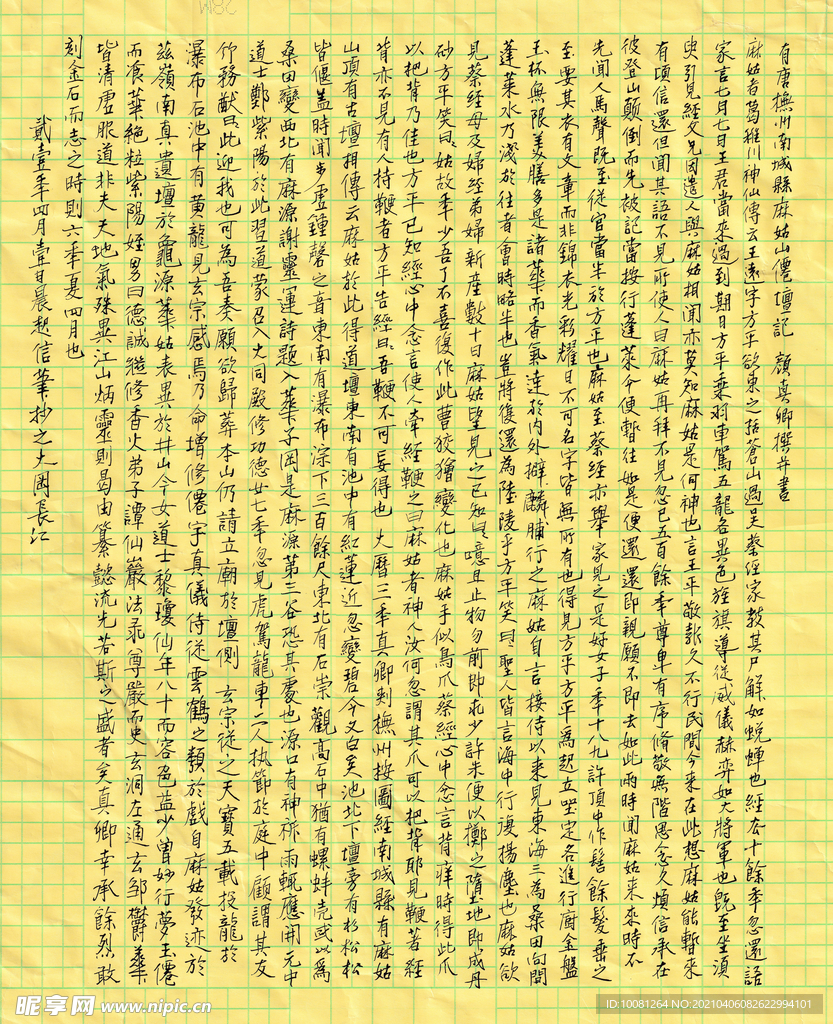 有唐撫州南城縣麻姑山僊壇記 顏真卿撰并書
麻姑者葛稚川神仙傳云王遠字方平欲東之括蒼山過吴蔡經家教其尸解如蛻蟬也經去十餘季忽還語
家言七月七日王君當來過到期日方平乘羽車駕五龍各異色旌旗導從威儀赫弈如大將軍也既至坐須
臾引見經父兄因遣人與麻姑相聞亦莫知麻姑是何神也言王平敬報久不行民間今來在此想麻姑能暫來
有頃信還但聞其語不見所使人曰麻姑再拜不見忽已五百餘季尊卑有序脩敬無階思念久煩信承在
彼登山顛倒而先被記當按行蓬萊今便暫往如是便還還即親願不即去如此兩時聞麻姑來來時不
先聞人馬聲既至從官當半於方平也麻姑至蔡經亦舉家見之是好女子季十八九許頂中作髻餘髮垂之
至要其衣有文章而非錦衣光彩耀日不可名字皆無所有也得見方平方平為起立坐定各進行廚金盤
玉杯無限美膳多是諸華而香氣達於內外擗麟脯行之麻姑自言接侍以來見東海三為桑田向間
蓬萊水乃淺於往者會時略半也豈將復還為陸陵乎方平笑曰聖人皆言海中行復揚塵也麻姑欲
見蔡經母及婦經弟婦新產數十日麻姑望見之已知曰噫且止勿前即求少許米便以擲之墮地即成丹
砂方平笑曰姑故季少吾了不喜復作此曹狡獪變化也麻姑手似鳥爪蔡經心中念言背痒時得此爪
以把背乃佳也方平已知經心中念言使人牽經鞭之曰麻姑者神人汝何忽謂其爪可以把背耶見鞭著經
背亦不見有人持鞭者方平告經曰吾鞭不可妄得也 大曆三季真卿刺撫州按圖經南城縣有麻姑
山頂有古壇相傳云麻姑於此得道壇東南有池中有紅蓮近忽變碧今又白矣池北下壇旁有杉松松
皆偃蓋時聞步虛鍾磬之音東南有瀑布淙下三百餘尺東北有石崇觀高石中猶有螺蚌殼或以為
桑田變西北有麻源謝靈運詩題入華子岡是麻源第三谷恐其處也源口有神祈雨輒應開元中
道士鄧紫陽於此習道蒙召入大同殿修功德廿七季忽見虎駕龍車二人執節於庭中顧謂其友
竹務猷曰此迎我也可為吾奏願欲歸葬本山仍請立廟於壇側 玄宗從之天寶五載投龍於
瀑布石池中有黃龍見玄宗感焉乃命增修僊宇真儀侍從雲鶴之類於戲自麻姑發迹於
茲嶺南真遺壇於龜源華姑表異於井山今女道士黎瓊仙年八十而容色益少曾妙行夢玉僊
而飡華絕粒紫陽姪男曰德誠繼修香火弟子譚仙巖法录尊嚴而史玄洞左通玄鄒鬱華
皆清虛服道非夫天地氣殊異江山炳靈則曷由纂懿流光若斯之盛者矣真卿幸承餘烈敢
刻金石而志之時則六季夏四月也
貳壹季四月壹日晨起信筆抄之大圀長江
昵享网 www.nipic.cn
ID:10081264 NO:20210406082622994101